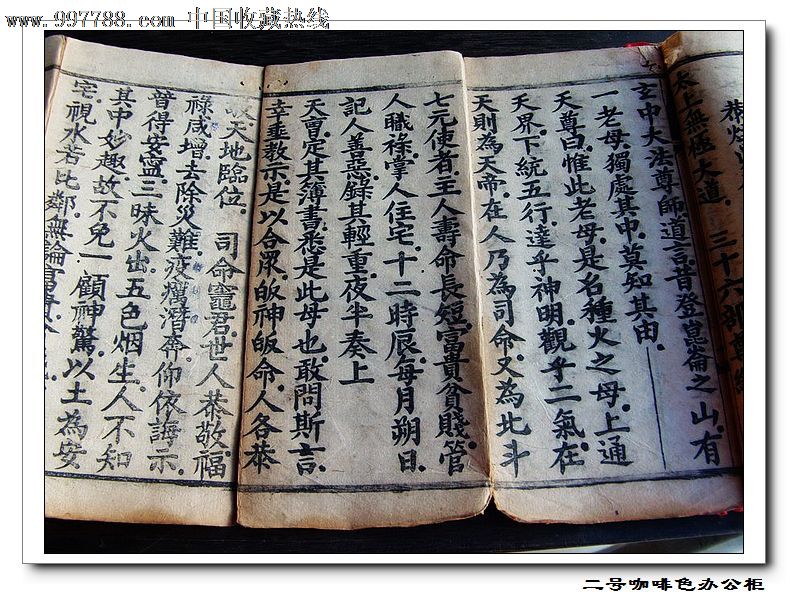 www.997788.com 中国收藏热线
恭炷
太上無極大道。三十六部尊
玄中大法尊師道言。昔登崑崙之山。有
一老母。獨處其中。莫知其由。
天尊曰。惟此老母。是名種火之母。上通
天界。下統五行。達乎神明。觀乎二氣。在
天則為天帝。在人乃為司命。又為北斗
七元使者。主人壽命長短。富貴貧賤。管
人職祿。掌人住宅。十二時辰。每月朔日。
記人善惡。錄其輕重。夜半奏上
天曹。定其簿書。悉是此母也。敢問斯言。
幸垂教示。是以合眾。皈神皈命。人各恭
天地臨位。司命竈君。世人恭敬。福
祿咸增。去除災難。疫癘潛奔。仰依誨示。
普得安寧。三昧火出。五色烟生。人不知
其中妙趣。故不免一顧神驚。以土為安
宅。視水若比鄰。無論富貴
二号咖啡色办公柜